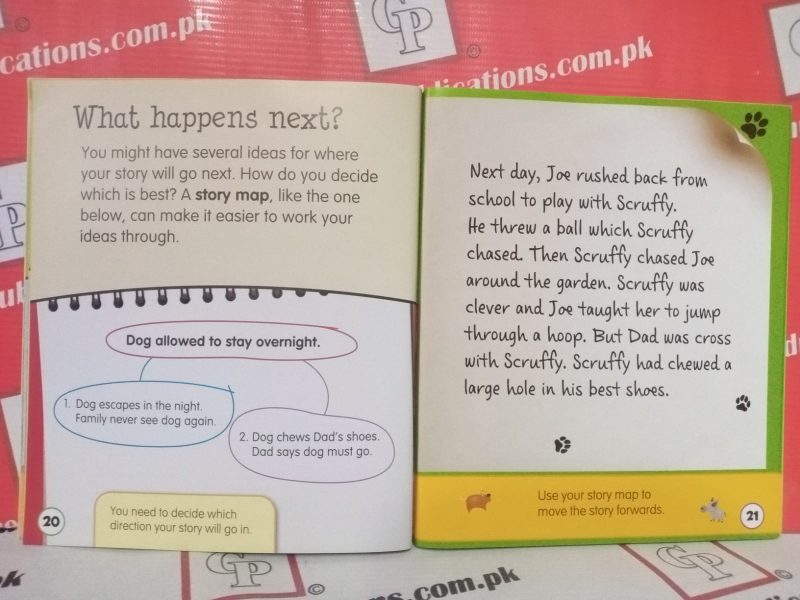 cations.com.pk
GP
©
ications.com.pk
GP
What happens next?
You might have several ideas for where
your story will go next. How do you decide
which is best? A story map, like the one
below, can make it easier to work your
ideas through.
Dog allowed to stay overnight.
1. Dog escapes in the night.
Family never see dog again.
2. Dog chews Dad's shoes.
Dad says dog must go.
You need to decide which
direction your story will go in.
20
Next day, Joe rushed back from
school to play with Scruffy.
He threw a ball which Scruffy
chased. Then Scruffy chased Joe
around the garden. Scruffy was
clever and Joe taught her to jump
through a hoop. But Dad was cross
with Scruffy. Scruffy had chewed a
large hole in his best shoes.
Use your story map to
move the story forwards.
21
GP
©
GP
©
k
s.com.pk